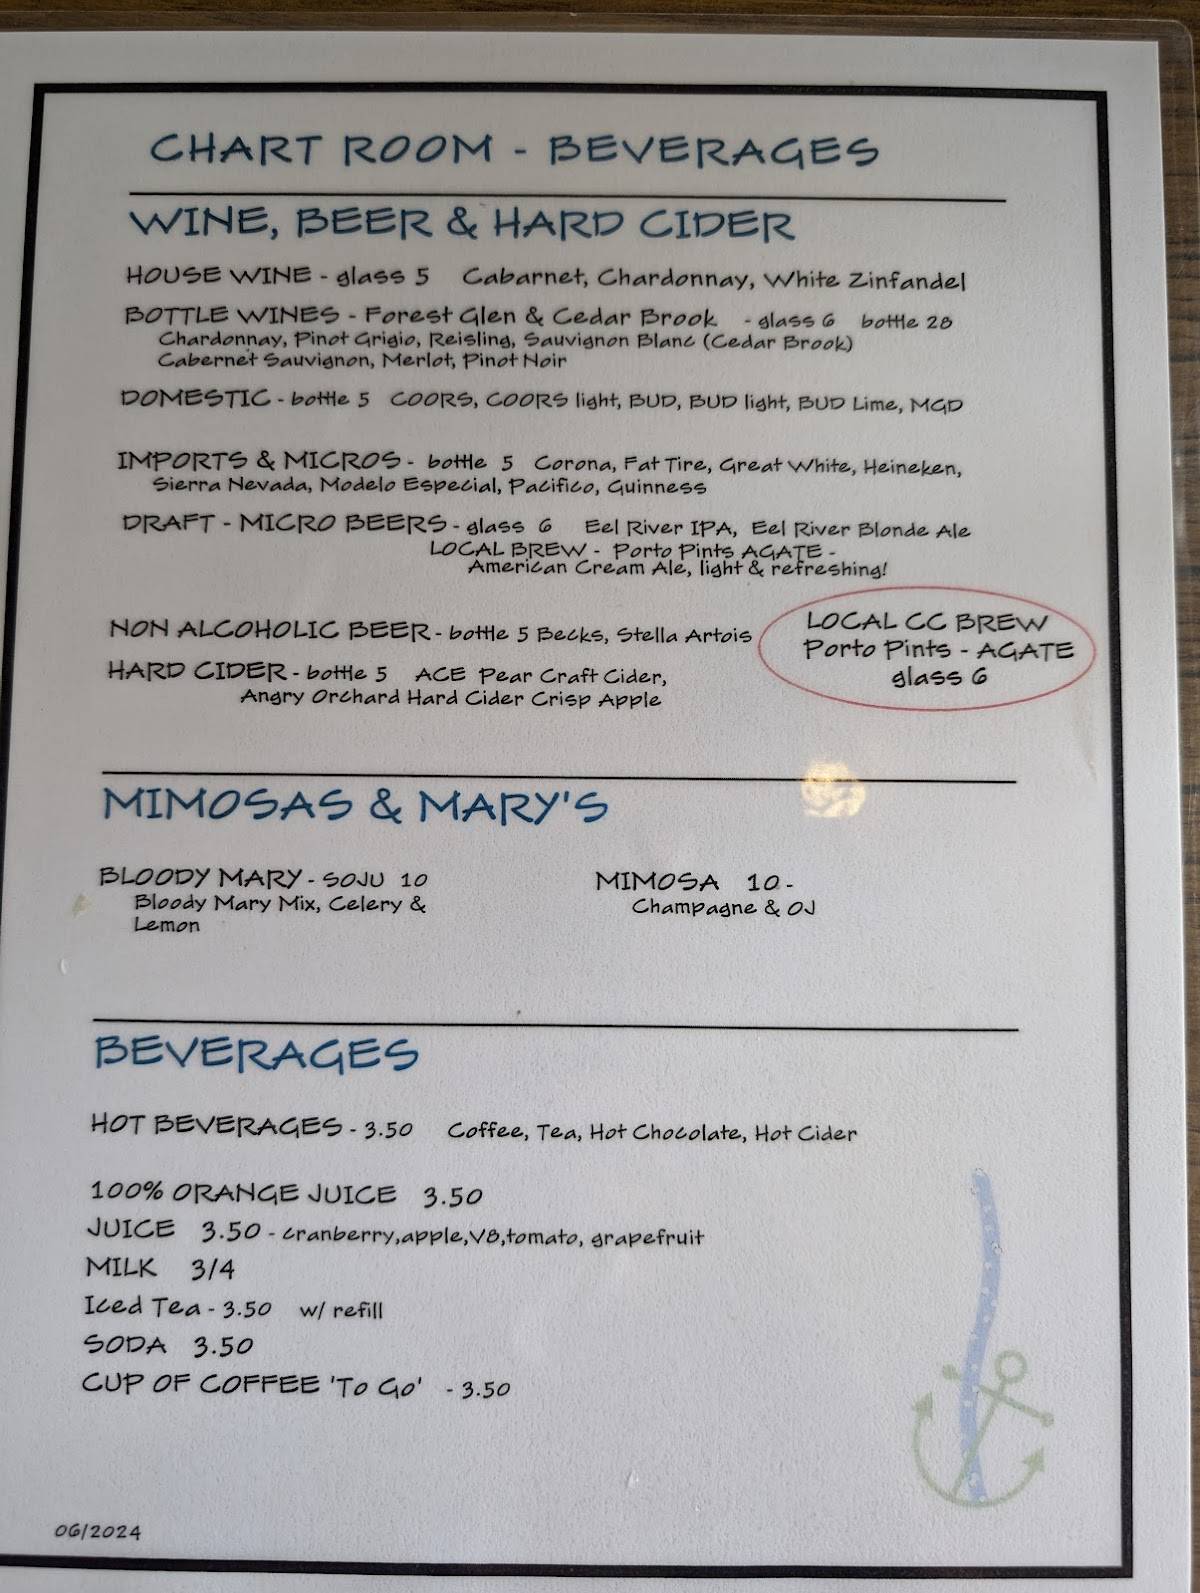 CHART ROOM - BEVERAGES
WINE, BEER & HARD CIDER
HOUSE WINE - glass 5 Cabarnet, Chardonnay, White Zinfandel
BOTTLE WINES - Forest Glen & Cedar Brook - glass 6 bottle 28
Chardonnay, Pinot Grigio, Reisling, Sauvignon Blanc (Cedar Brook)
Cabernet Sauvignon, Merlot, Pinot Noir
DOMESTIC - bottle 5 COORS, COORS light, BUD, BUD light, BUD Lime, MGD
IMPORTS & MICROS - bottle 5 Corona, Fat Tire, Great White, Heineken,
Sierra Nevada, Modelo Especial, Pacifico, Guinness
DRAFT - MICRO BEERS - glass 6 Eel River IPA, Eel River Blonde Ale
LOCAL BREW - Porto Pints AGATE -
American Cream Ale, light & refreshing!
NON ALCOHOLIC BEER - bottle 5 Becks, Stella Artois
HARD CIDER - bottle 5 ACE Pear Craft Cider,
Angry Orchard Hard Cider Crisp Apple
LOCAL CC BREW
Porto Pints - AGATE
glass 6
MIMOSAS & MARY'S
BLOODY MARY - SOJU 10
Bloody Mary Mix, Celery &
Lemon
MIMOSA 10 -
Champagne & OJ
BEVERAGES
HOT BEVERAGES - 3.50 Coffee, Tea, Hot Chocolate, Hot Cider
100% ORANGE JUICE 3.50
JUICE 3.50 - cranberry,apple,V8,tomato, grapefruit
MILK 3/4
Iced Tea - 3.50 w/ refill
SODA 3.50
CUP OF COFFEE 'To Go' - 3.50
06/2024